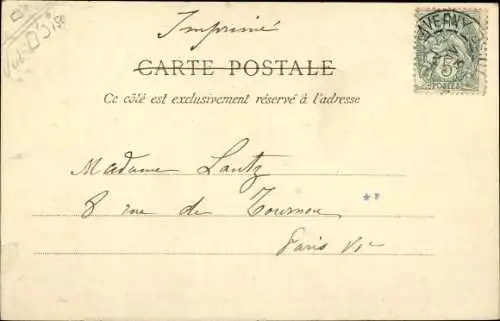 Val-D'Oise
Imprimé
TAVERNY
CARTE POSTALE
5
POSTES
Ce côté est exclusivement réservé à l'adresse
Madame Lantz
8 rue de Tournon
Paris VIe